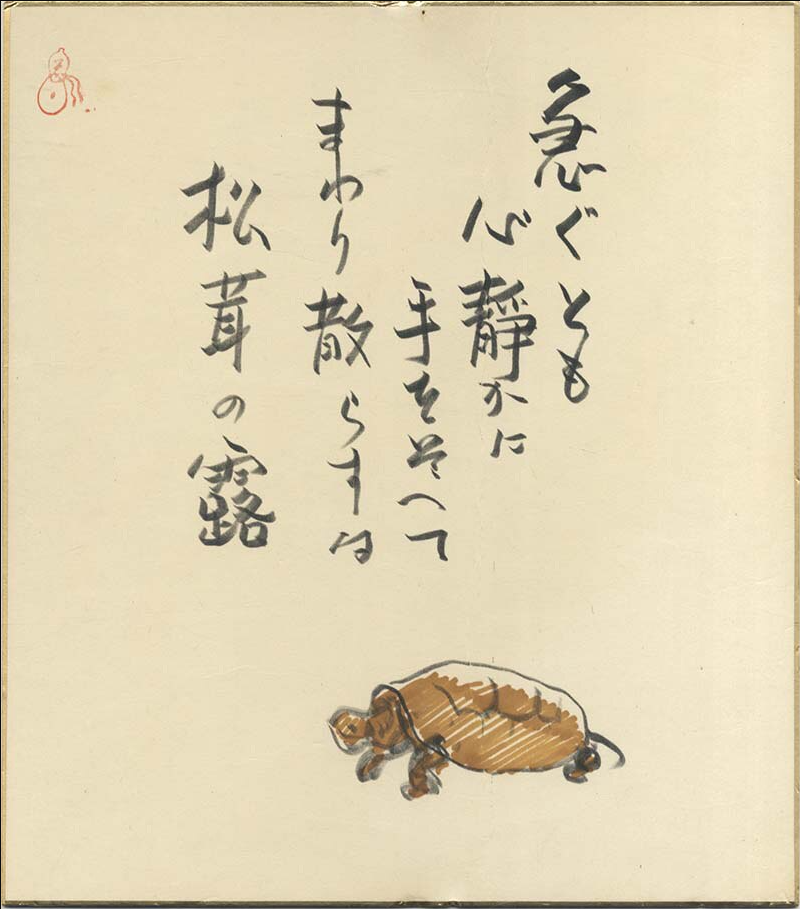 急ぐとも
心静かに
手をそへて
まわり散らすな
松茸の露